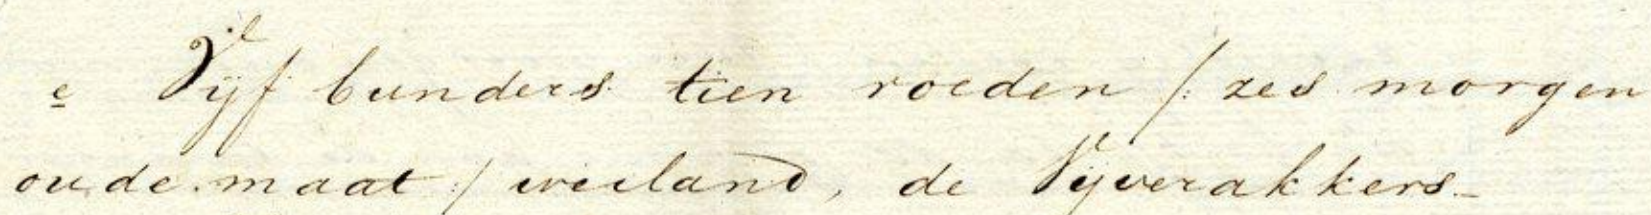 e Vijf bunders tien roeden /: zes morgen
oude maat :/ weiland, de Vijverakkers_